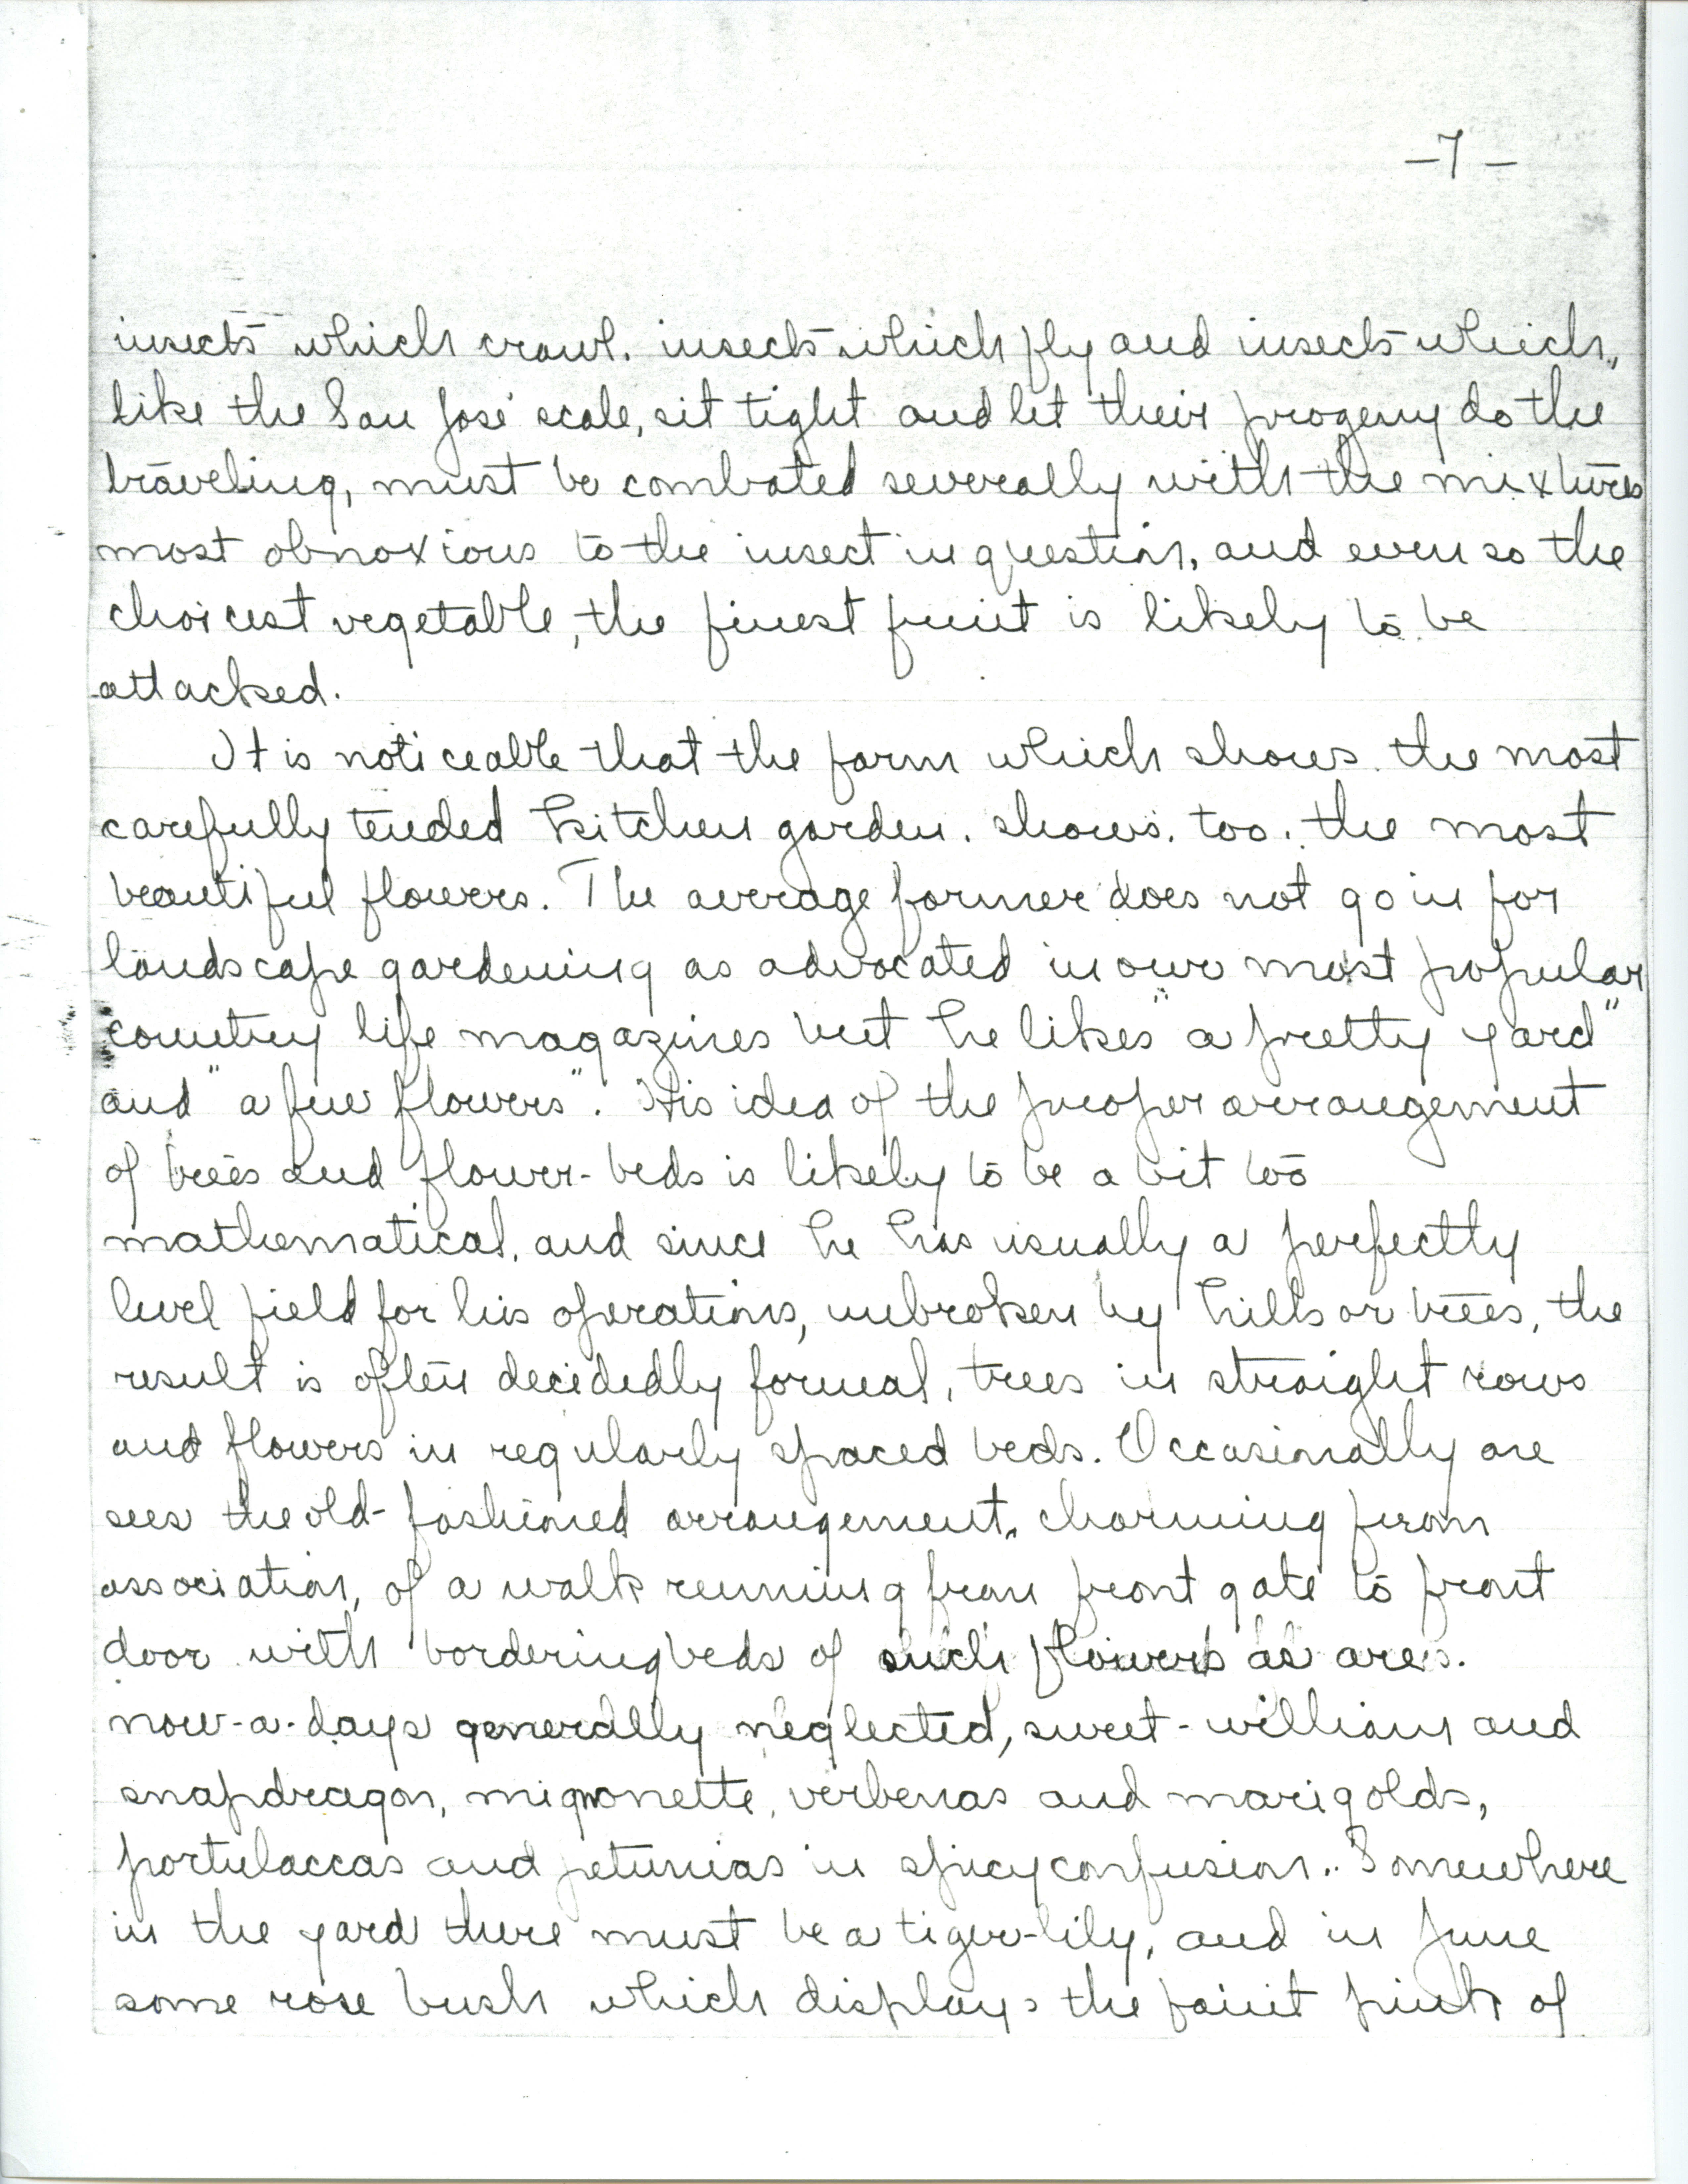 -7-
insects which crawl, insects which fly and insects which,
like the San José scale, sit tight and let their progeny do the
traveling, must be combated severally with the mixtures
most obnoxious to the insect in question, and even so the
choicest vegetable, the finest fruit is likely to be
attacked.
It is noticeable that the farm which shows the most
carefully tended kitchen garden, shows, too, the most
beautiful flowers. The average farmer does not go in for
landscape gardening as advocated in our most popular
country life magazines but he likes "a pretty yard"
and "a few flowers". His idea of the proper arrangement
of trees and flower-beds is likely to be a bit too
mathematical, and since he has usually a perfectly
level field for his operations, unbroken by hills or trees, the
result is often decidedly formal, trees in straight rows
and flowers in regularly spaced beds. Occasionally one
sees the old-fashioned arrangement, charming from
association, of a walk running from front gate to front
door with bordering beds of such flowers as are
now-a-days generally neglected, sweet-william and
snapdragon, mignonette, verbenas and marigolds,
portulaccas and petunias in spicy confusion. Somewhere
in the yard there must be a tiger-lily, and in June
some rose bush which displays the faint pink of